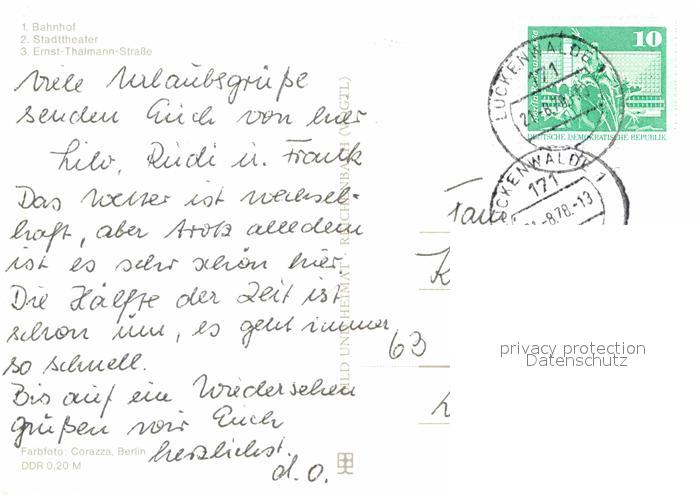 1. Bahnhof
2. Stadttheater
3. Ernst-Thälmann-Straße
Viele Urlaubsgrüße
senden Euch von hier
Lilo, Rudi u. Frank
Das Wetter ist wechsel-
haft, aber trotz alledem
ist es sehr schön hier.
Die Hälfte der Zeit ist
schon um, es geht immer
so schnell.
Bis auf ein Wiedersehen
grüßen wir Euch
herzlichst.
d. O.
Farbfoto: Corazza, Berlin
DDR 0,20 M
BILD UND HEIMAT · REICHENBACH (VOGTL)
10
DEUTSCHE DEMOKRATISCHE REPUBLIK
LUCKENWALDE 1
171
21.-8.78.-13
LUCKENWALDE 1
171
21.-8.78.-13
Fam
K
63
L
privacy protection
Datenschutz